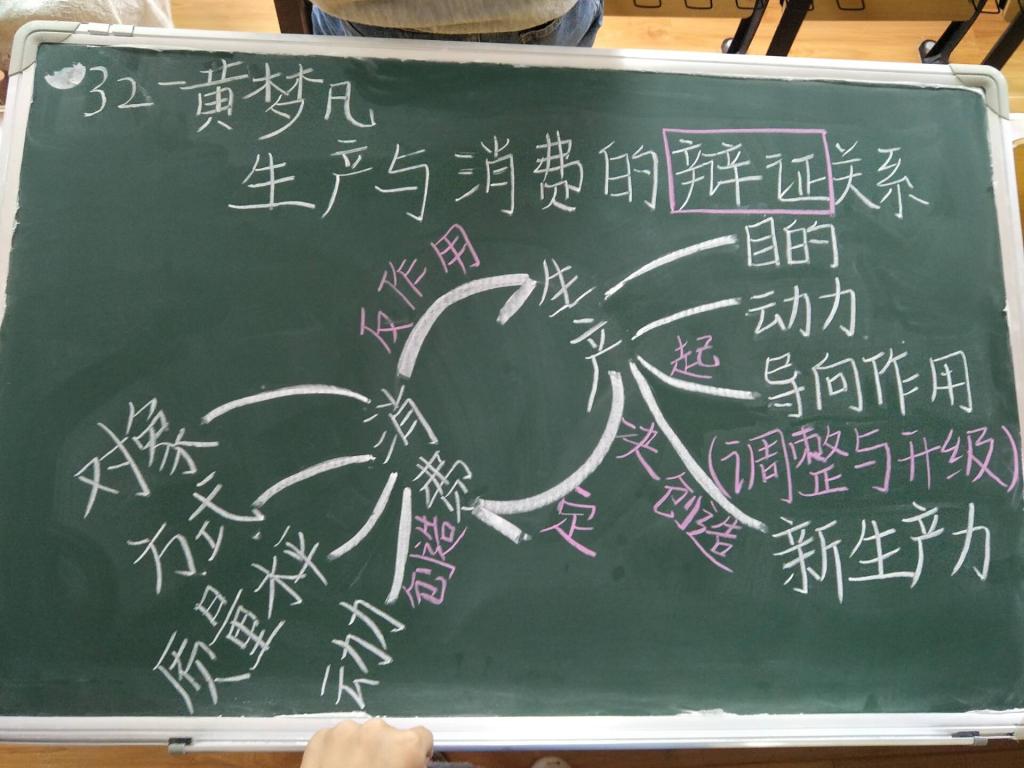 32-黄梦凡
生产与消费的辩证关系
反作用
生产
目的
动力
起
导向作用
(调整与升级)
创造
新生产力
决定
消费
对象
方式
质量水平
创造
动力